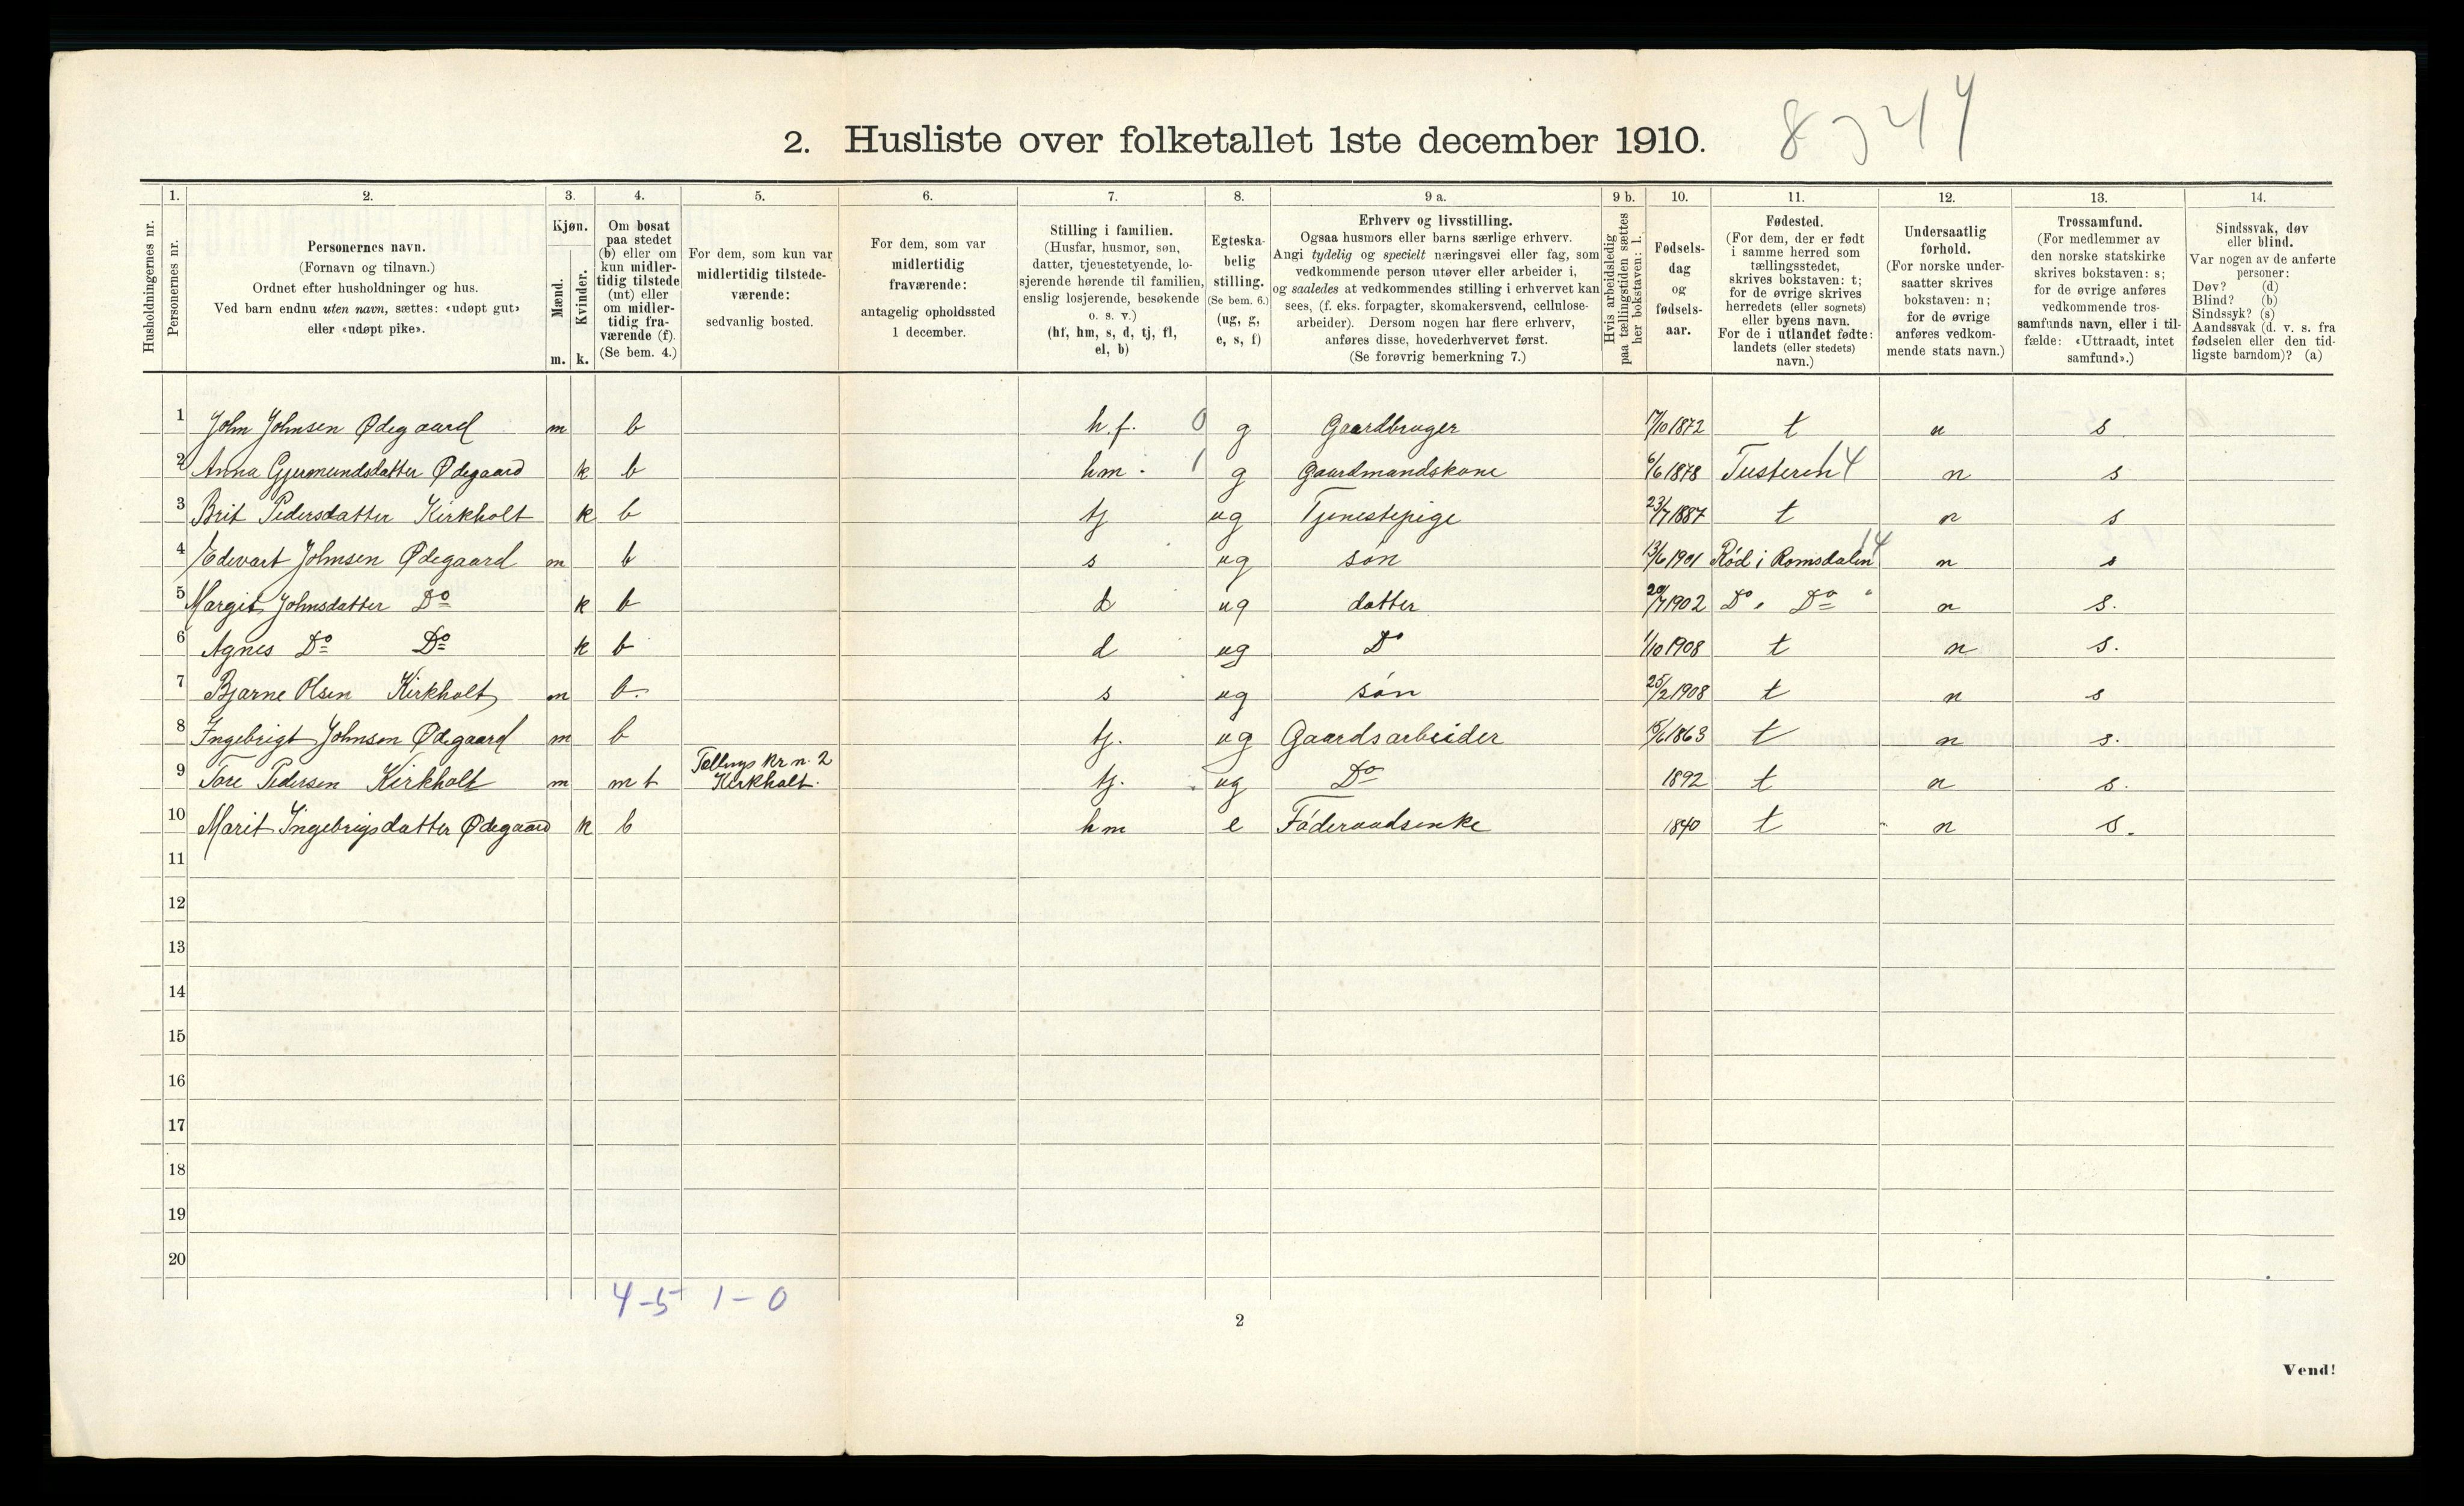 2. Husliste over folketallet 1ste december 1910.
1. 2. 3. 4. 5. 6. 7. 8. 9 a. 9 b. 10. 11. 12. 13. 14.
Husholdningernes nr.
Personernes nr.
Personernes navn.
(Fornavn og tilnavn.)
Ordnet efter husholdninger og hus.
Ved barn endnu uten navn, sættes: «udøpt gut»
eller «udøpt pike».
Kjøn.
Mænd.
Kvinder.
m. k.
Om bosat
paa stedet
(b) eller om
kun midler-
tidig tilstede
(mt) eller
om midler-
tidig fra-
værende (f).
(Se bem. 4.)
For dem, som kun var
midlertidig tilstede-
værende:
sedvanlig bosted.
For dem, som var
midlertidig
fraværende:
antagelig opholdssted
1 december.
Stilling i familien.
(Husfar, husmor, søn,
datter, tjenestetyende, lo-
sjerende hørende til familien,
enslig losjerende, besøkende
o. s. v.)
(hf, hm, s, d, tj, fl,
el, b)
Egteska-
belig
stilling.
(Se bem. 6.)
(ug, g,
e, s, f)
Erhverv og livsstilling.
Ogsaa husmors eller barns særlige erhverv.
Angi tydelig og specielt næringsvei eller fag, som
vedkommende person utøver eller arbeider i,
og saaledes at vedkommendes stilling i erhvervet kan
sees, (f. eks. forpagter, skomakersvend, cellulose-
arbeider). Dersom nogen har flere erhverv,
anføres disse, hovederhvervet først.
(Se forøvrig bemerkning 7.)
Hvis arbeidsledig
paa tællingstiden sættes
her bokstaven: l.
Fødsels-
dag
og
fødsels-
aar.
Fødested.
(For dem, der er født
i samme herred som
tællingsstedet,
skrives bokstaven: t;
for de øvrige skrives
herredets (eller sognets)
eller byens navn.
For de i utlandet fødte:
landets (eller stedets)
navn.)
Undersaatlig
forhold.
(For norske under-
saatter skrives
bokstaven: n;
for de øvrige
anføres vedkom-
mende stats navn.)
Trossamfund.
(For medlemmer av
den norske statskirke
skrives bokstaven: s;
for de øvrige anføres
vedkommende tros-
samfunds navn, eller i til-
fælde: «Uttraadt, intet
samfund».)
Sindssvak, døv
eller blind.
Var nogen av de anførte
personer:
Døv? (d)
Blind? (b)
Sindssyk? (s)
Aandssvak (d. v. s. fra
fødselen eller den tid-
ligste barndom)? (a)
1 John Johnsen Ødegaard m b h.f. 0 g Gaardbruger 17/10 1872 t n s
2 Anna Gjermundsdatter Ødegaard k b hm. 1 g Gaardmandskone 6/6 1878 Tusteren 14 n s
3 Brit Pedersdatter Kirkholt k b tj ug Tjenestepige 23/7 1887 t n s
4 Edevart Johnsen Ødegaard m b s ug søn 13/6 1901 Rød i Romsdalen 14 n s
5 Margit Johnsdatter Do k b d ug datter 20/7 1902 Do " Do " n s.
6 Agnes Do Do k b d ug Do 1/10 1908 t n s.
7 Bjarne Olsen Kirkholt m b. s ug søn 25/2 1908 t n s
8 Ingebrigt Johnsen Ødegaard m b tj. ug Gaardsarbeider 15/6 1863 t n s.
9 Tore Pedersen Kirkholt m mt Tællings kr n. 2
Kirkholt. tj. ug Do 1892 t n s.
10 Marit Ingebrigsdatter Ødegaard k b hm e Føderaadsenke 1840 t n s.
11
12
13
14
15
16
17
18
19
20
4-5 1-0
2
Vend!